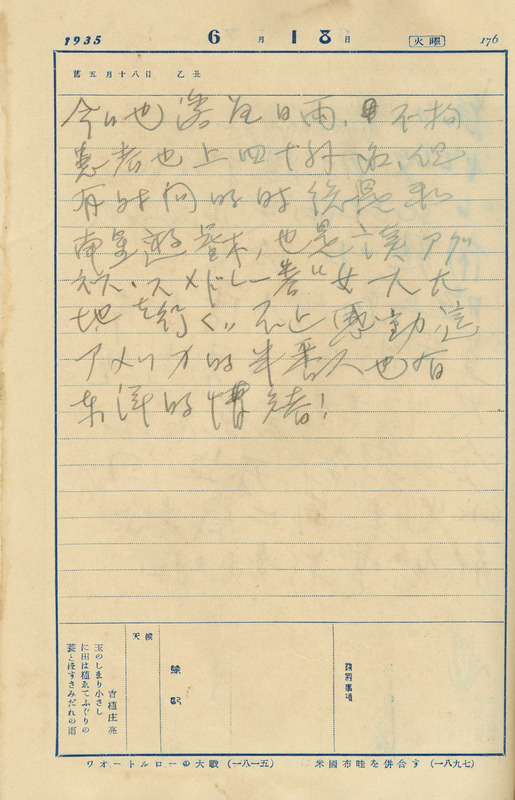 1935 6月18日 火曜 176
舊五月十八日 乙丑
今日也深夜日雨，不拘
患者也上四十外名，但
有時間的時候是和
南星遊壘球，也是讀アグ
ネス・スメドレー著“女一人大
地を行く”不止感動，這
アメリカ的半番人也有
東洋的情緒！
天候
吉植庄亮
玉のしゑり小さし
に田は植ゑてふぐりの
蓑とほすさみだれの雨
ワオートルローの大戰（一八一五） 米國布哇を併合す（一八九七）